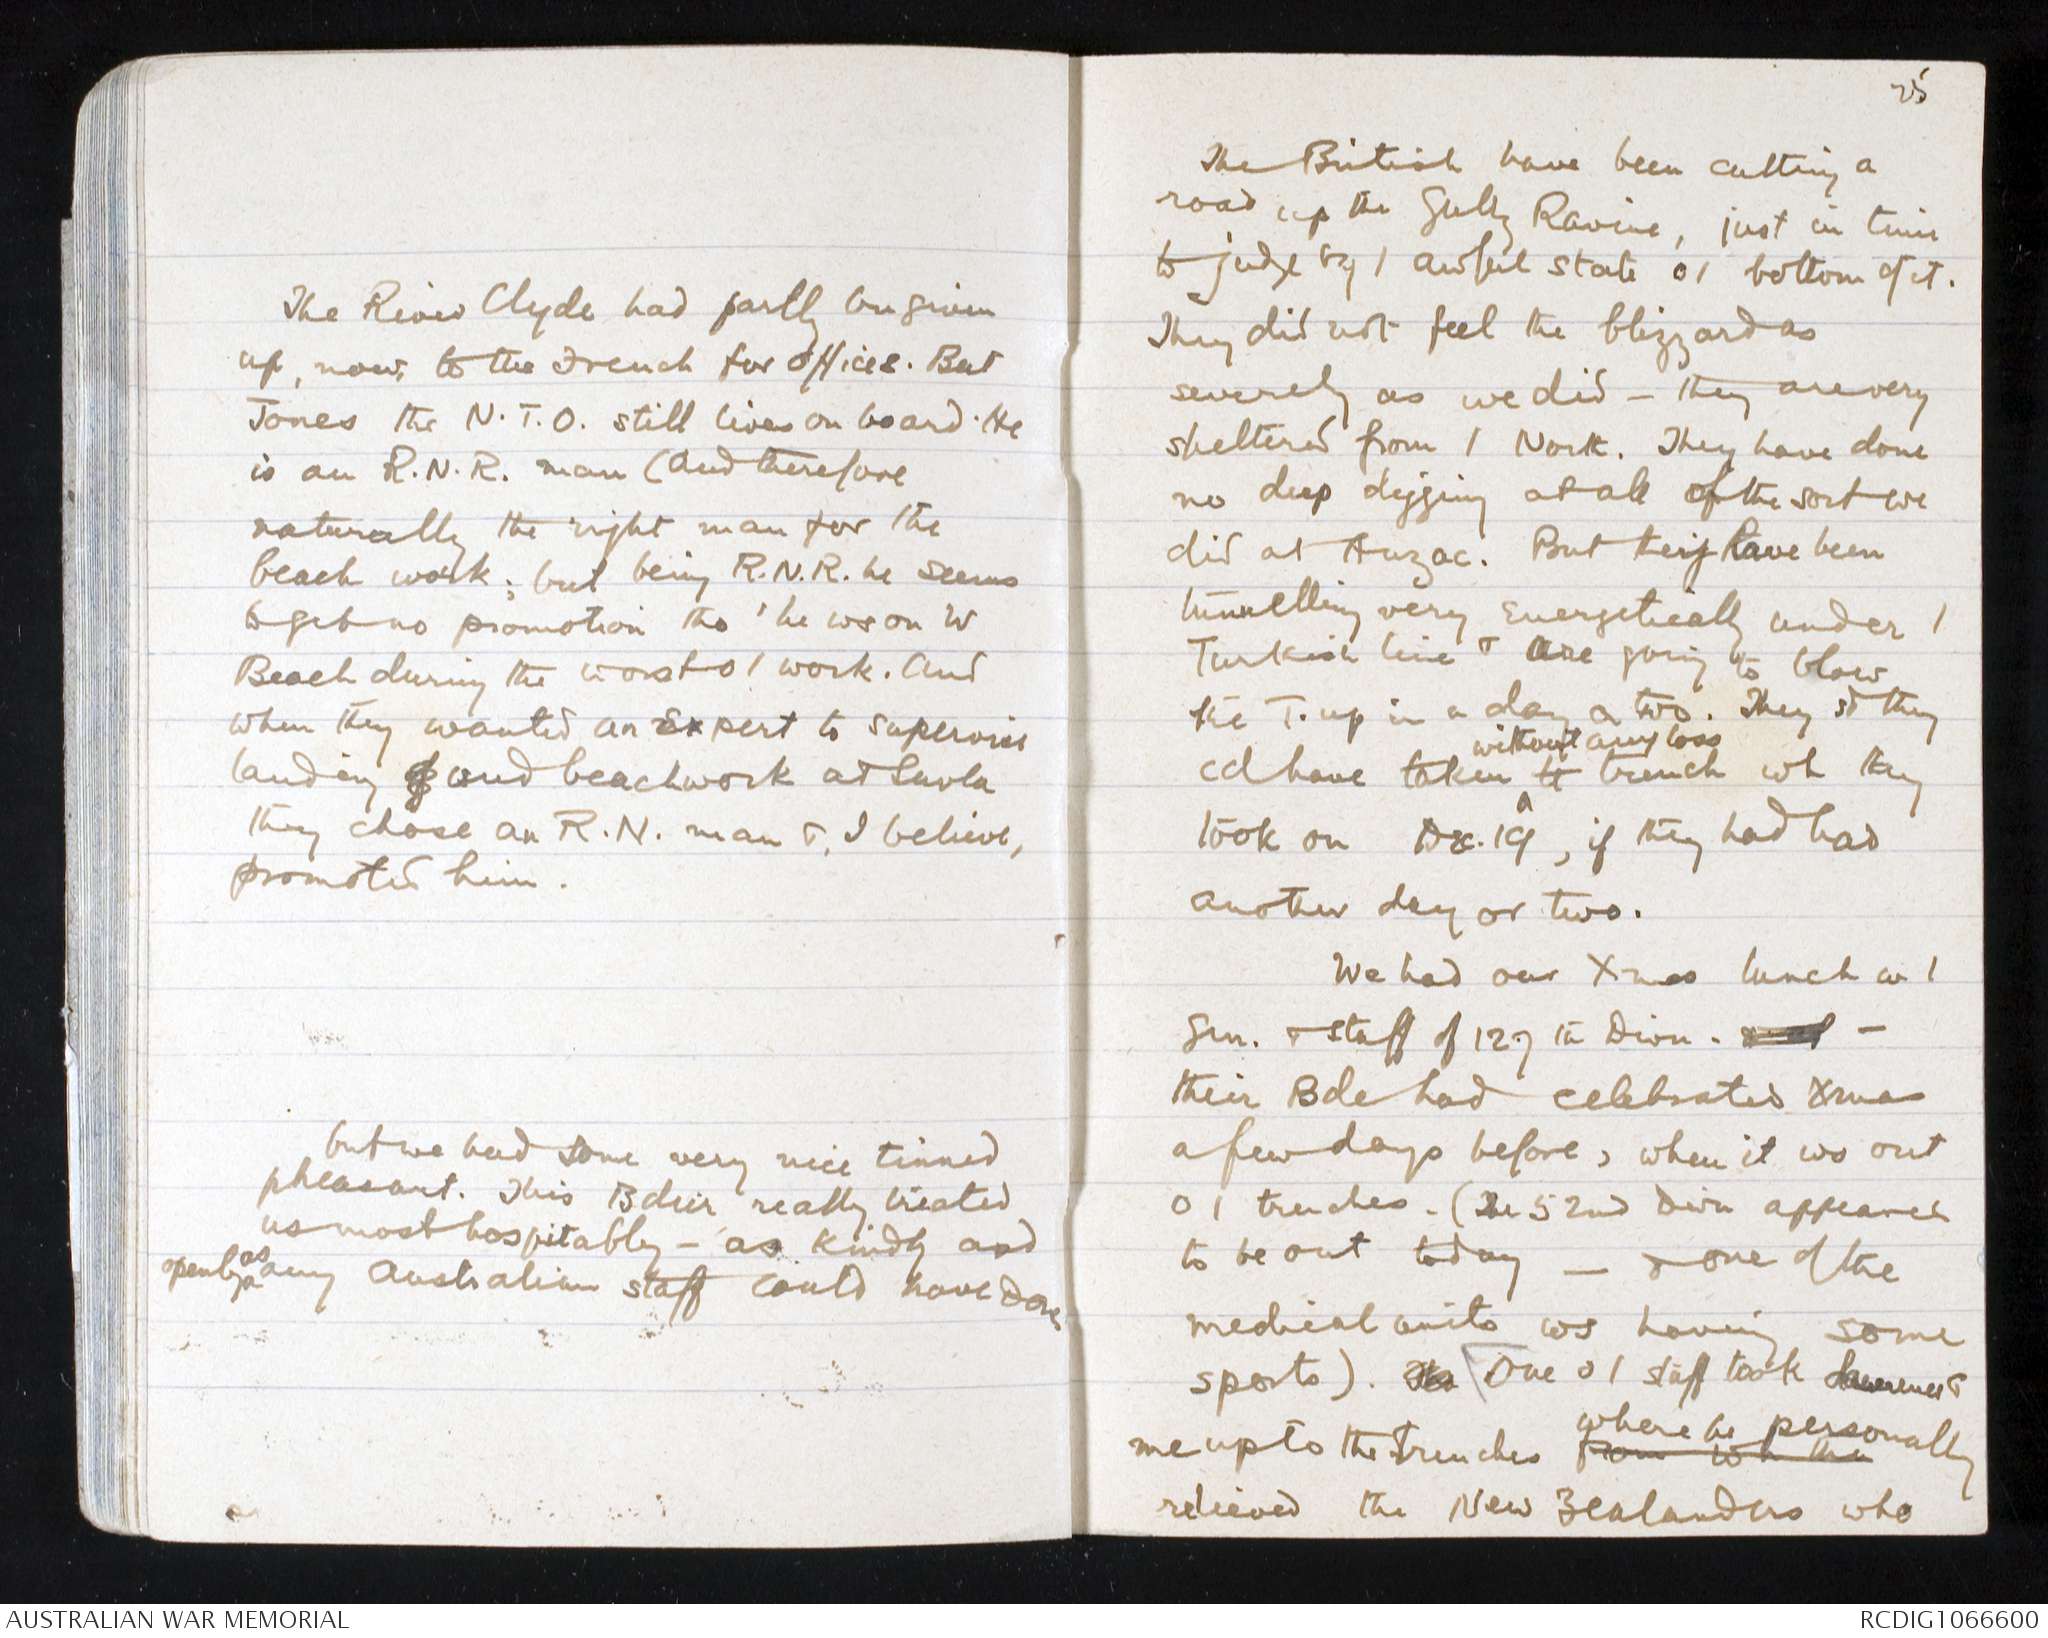 The River Clyde had partly bn given
up, now, to the French for offices. But
Jones the N.T.O. still lives on board. He
is an R.N.R. man (and therefore
naturally the right man for the
beach work; but being R.N.R. he seems
to get no promotion tho' he ws on W
Beach during the worst o / work. And
when they wanted an expert to supervise
landing and beachwork at Suvla
they chose an R.N. man &, I believe,
promoted him.
but we had some very nice tinned
pheasant. This Bdier really treated
us most hospitably - as kindly and
openly as any Australian staff could have done
25
The British have been cutting a
road up the Gully Ravine, just in time
to judge by / awful state o / bottom of it.
They did not feel the blizzard as
severely as we did - they are very
sheltered from / North. They have done
no deep digging at all of the sort we
did at Anzac. But they have been
tunnelling very energetically under /
Turkish line & are going to blow
the T. up in a day or two. They sd they
without any loss
cd have taken tt trench wh they
took on Dec. 19, if they had had
another day or two.
We had our Xmas lunch w /
Gen. & staff of 127th Divn. -
their Bde had celebrated Xmas
a few days before, when it ws out
o / trenches. (The 52nd Divn appeared
to be out today - & one of the
medical units ws having some
sports). One o / staff took Lawrence &
where he personally
me up to the trenches from wh the
relieved the New Zealanders who
AUSTRALIAN WAR MEMORIAL
RCDIG1066600